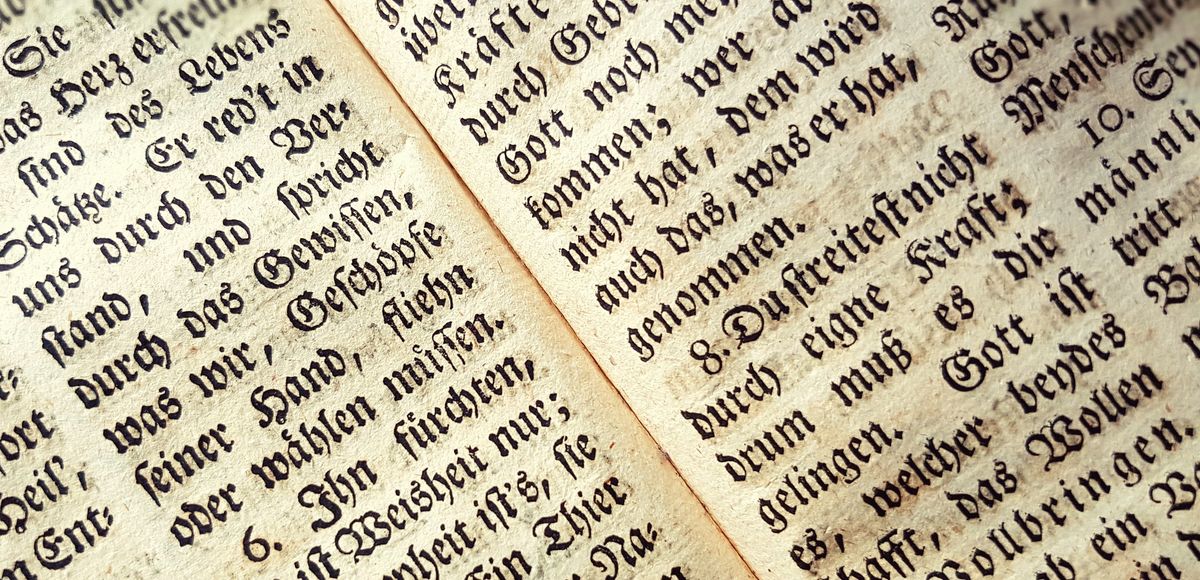 Heil',
Ent-
Sie
das Herz
ſind des Lebens
Schätze. Er red't in
uns durch den Ver-
ſtand, und ſpricht
durch das Gewiſſen,
was wir, Geſchöpfe
ſeiner Hand, fliehn
oder wählen müſſen.
6. Ihn fürchten,
iſt Weisheit nur;
iſt's, ſie
Ein Thier
Na-
über
Kräfte
durch
Gott noch
kommen; wer
nicht hat, dem wird
auch das, was er hat,
genommen.
8. Du ſtreiteſt nicht
durch eigne Kraft;
drum muß es dir
gelingen. Gott iſt
es, welcher beydes
ſchafft, das Wollen
Vollbringen.
ein
Gott,
10.
männli
tritt